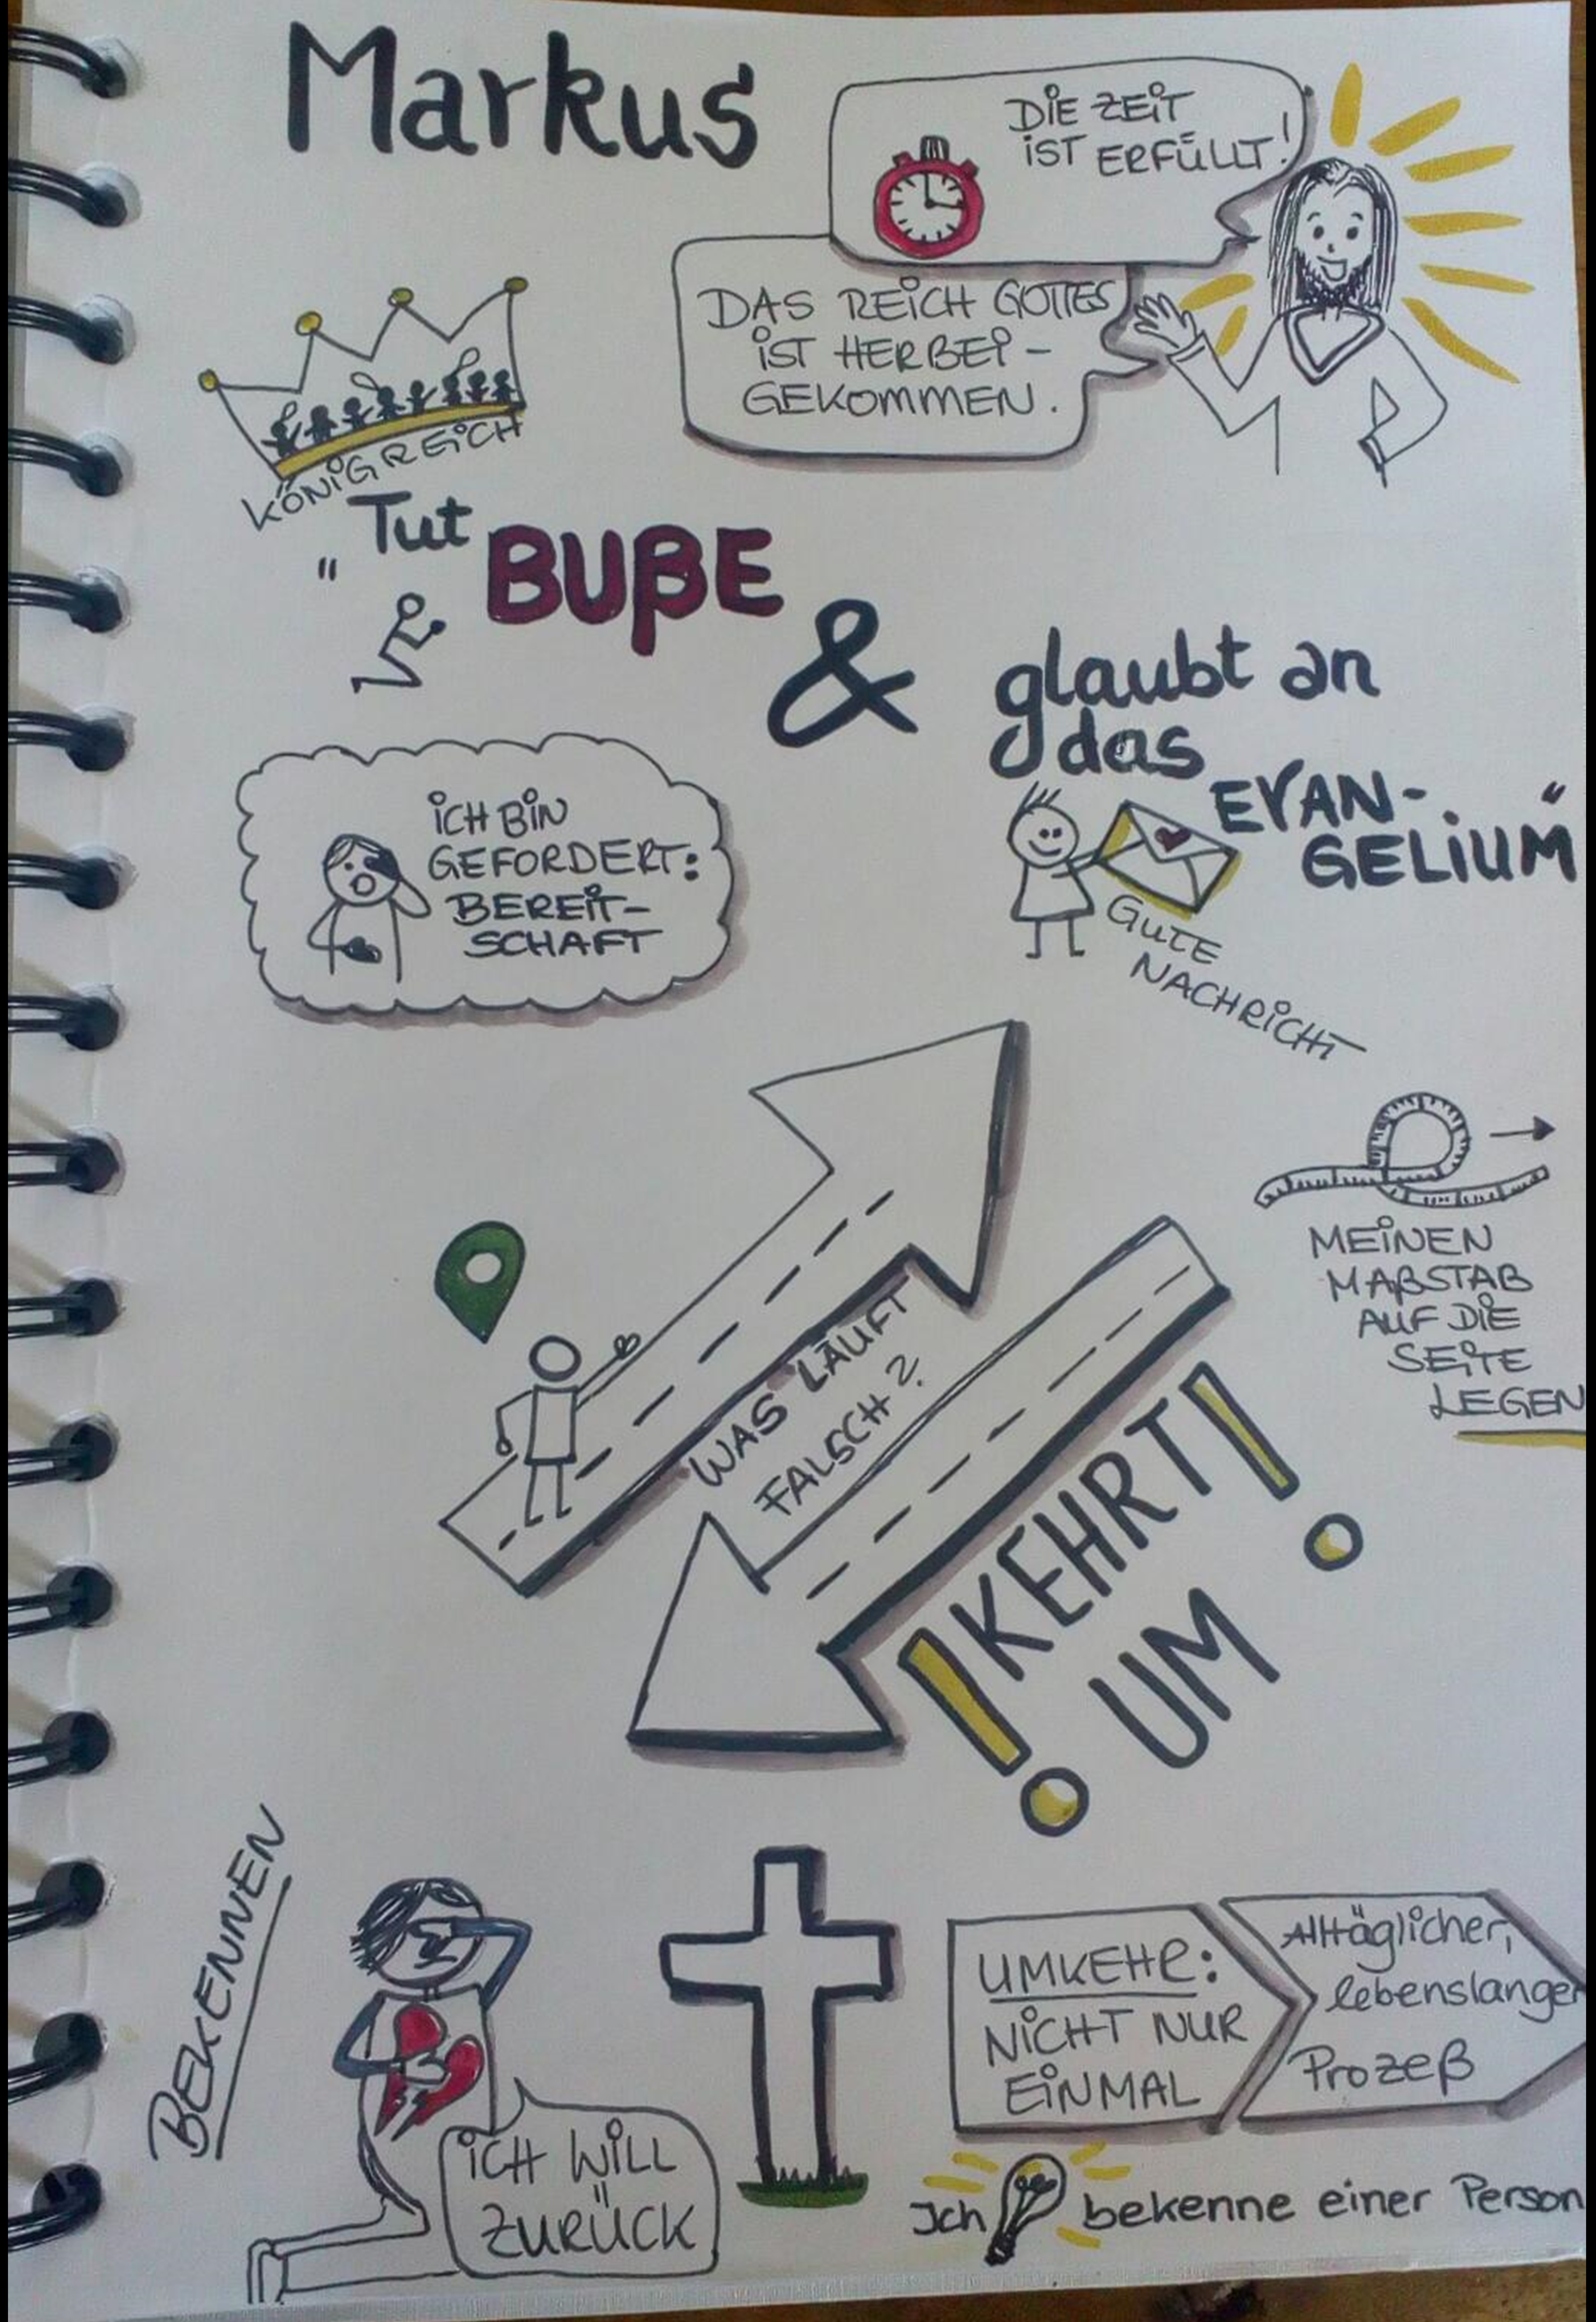 Markus
DIE ZEIT
IST ERFÜLLT!
DAS REICH GOTTES
IST HERBEI-
GEKOMMEN.
KÖNIGREICH
"Tut
BUßE
&
glaubt an
das
EVAN-
GELIUM"
ICH BIN
GEFORDERT:
BEREIT-
SCHAFT
GUTE
NACHRICHT
MEINEN
MAßSTAB
AUF DIE
SEITE
LEGEN
WAS LÄUFT
FALSCH?
!KEHRT!
UM
BEKENNEN
ICH WILL
ZURÜCK
UMKEHR:
NICHT NUR
EINMAL
Alltäglicher,
lebenslanger
Prozeß
Ich bekenne einer Person